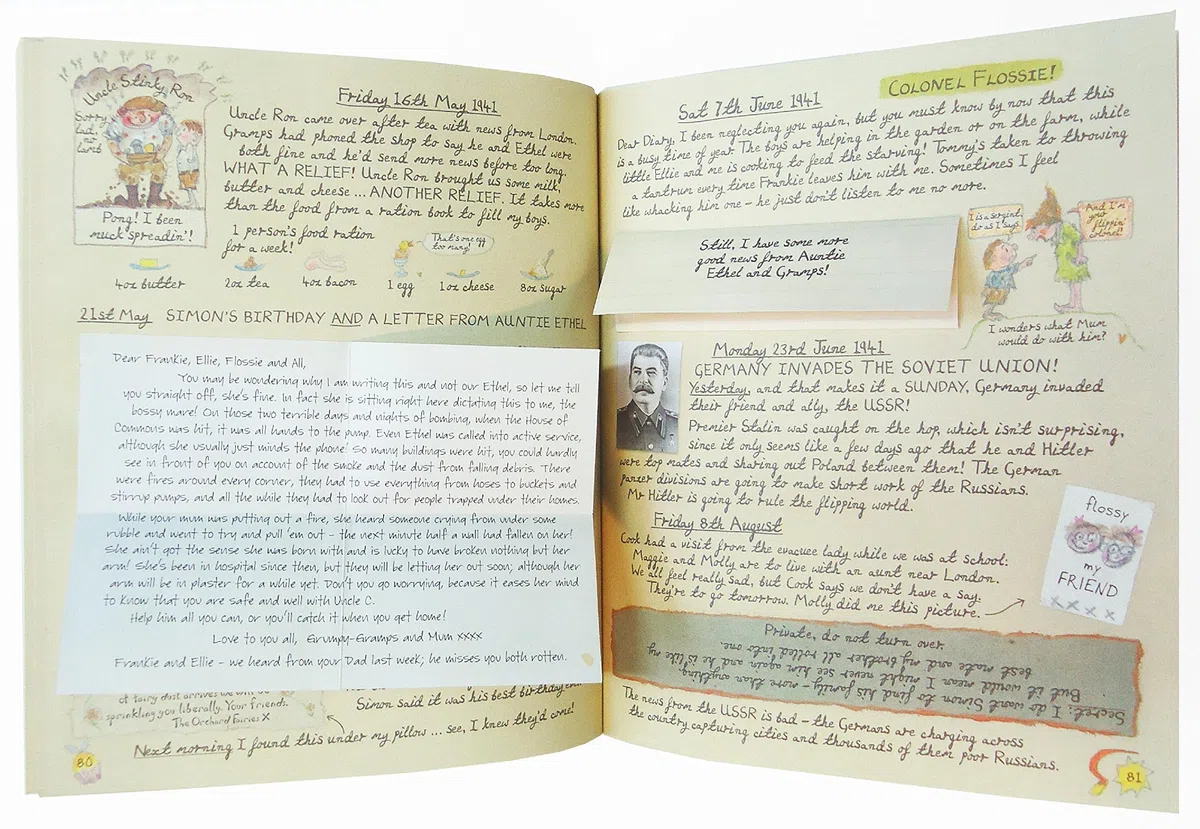 Uncle Stinky Ron
Sorry
lad,
no
lamb
Pong! I been
muck spreadin'!
Friday 16th May 1941
Uncle Ron came over after tea with news from London.
Gramps had phoned the shop to say he and Ethel were
both fine and he'd send more news before too long.
WHAT A RELIEF! Uncle Ron brought us some milk,
butter and cheese ... ANOTHER RELIEF. It takes more
than the food from a ration book to fill my boys.
1 person's food ration
for a week!
That's one egg
too many!
4oz butter
2oz tea
4oz bacon
1 egg
1oz cheese
8oz sugar
21st May SIMON'S BIRTHDAY AND A LETTER FROM AUNTIE ETHEL
Dear Frankie, Ellie, Flossie and All,
You may be wondering why I am writing this and not our Ethel, so let me tell
you straight off, she's fine. In fact she is sitting right here dictating this to me, the
bossy mare! On those two terrible days and nights of bombing, when the House of
Commons was hit, it was all hands to the pump. Even Ethel was called into active service,
although she usually just minds the phone! So many buildings were hit, you could hardly
see in front of you on account of the smoke and the dust from falling debris. There
were fires around every corner, they had to use everything from hoses to buckets and
stirrup pumps, and all the while they had to look out for people trapped under their homes.
While your mum was putting out a fire, she heard someone crying from under some
rubble and went to try and pull 'em out - the next minute half a wall had fallen on her!
She ain't got the sense she was born with and is lucky to have broken nothing but her
arm! She's been in hospital since then, but they will be letting her out soon; although her
arm will be in plaster for a while yet. Don't you go worrying, because it eases her mind
to know that you are safe and well with Uncle C.
Help him all you can, or you'll catch it when you get home!
Love to you all, Grumpy-Gramps and Mum xxxx
Frankie and Ellie - we heard from your Dad last week; he misses you both rotten.
of fairy dust arrives we will be
sprinkling you liberally. Your friends,
The Orchard Fairies X
Simon said it was his best birthday
Next morning I found this under my pillow ... see, I knew they'd come!
80
COLONEL FLOSSIE!
Sat 7th June 1941
Dear Diary, I been neglecting you again, but you must know by now that this
is a busy time of year. The boys are helping in the garden or on the farm, while
little Ellie and me is cooking to feed the starving! Tommy's taken to throwing
a tantrum every time Frankie leaves him with me. Sometimes I feel
like whacking him one - he just don't listen to me no more.
Still, I have some more
good news from Auntie
Ethel and Gramps!
I is a sergint,
do as I says
And I'm
your
flippin'
colonel!
I wonders what Mum
would do with him?
Monday 23rd June 1941
GERMANY INVADES THE SOVIET UNION!
Yesterday, and that makes it a SUNDAY, Germany invaded
their friend and ally, the USSR!
Premier Stalin was caught on the hop, which isn't surprising,
since it only seems like a few days ago that he and Hitler
were top mates and sharing out Poland between them! The German
panzer divisions are going to make short work of the Russians.
Mr Hitler is going to rule the flipping world.
Friday 8th August
Cook had a visit from the evacuee lady while we was at school.
Maggie and Molly are to live with an aunt near London.
We all feel really sad, but Cook says we don't have a say.
They're to go tomorrow. Molly did me this picture.
flossy
my
FRIEND
xxxx
Private, do not turn over.
Secret: I do want Simon to find his family - more than anything.
But it would mean I might never see him again and he is like my
best mate and my brother all rolled into one.
The news from the USSR is bad - the Germans are charging across
the country capturing cities and thousands of them poor Russians.
81